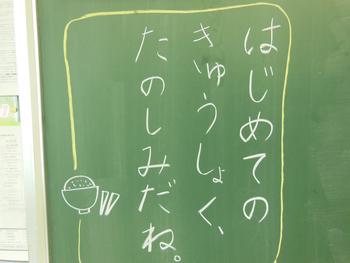 はじめての
きゅうしょく、
たのしみだね。